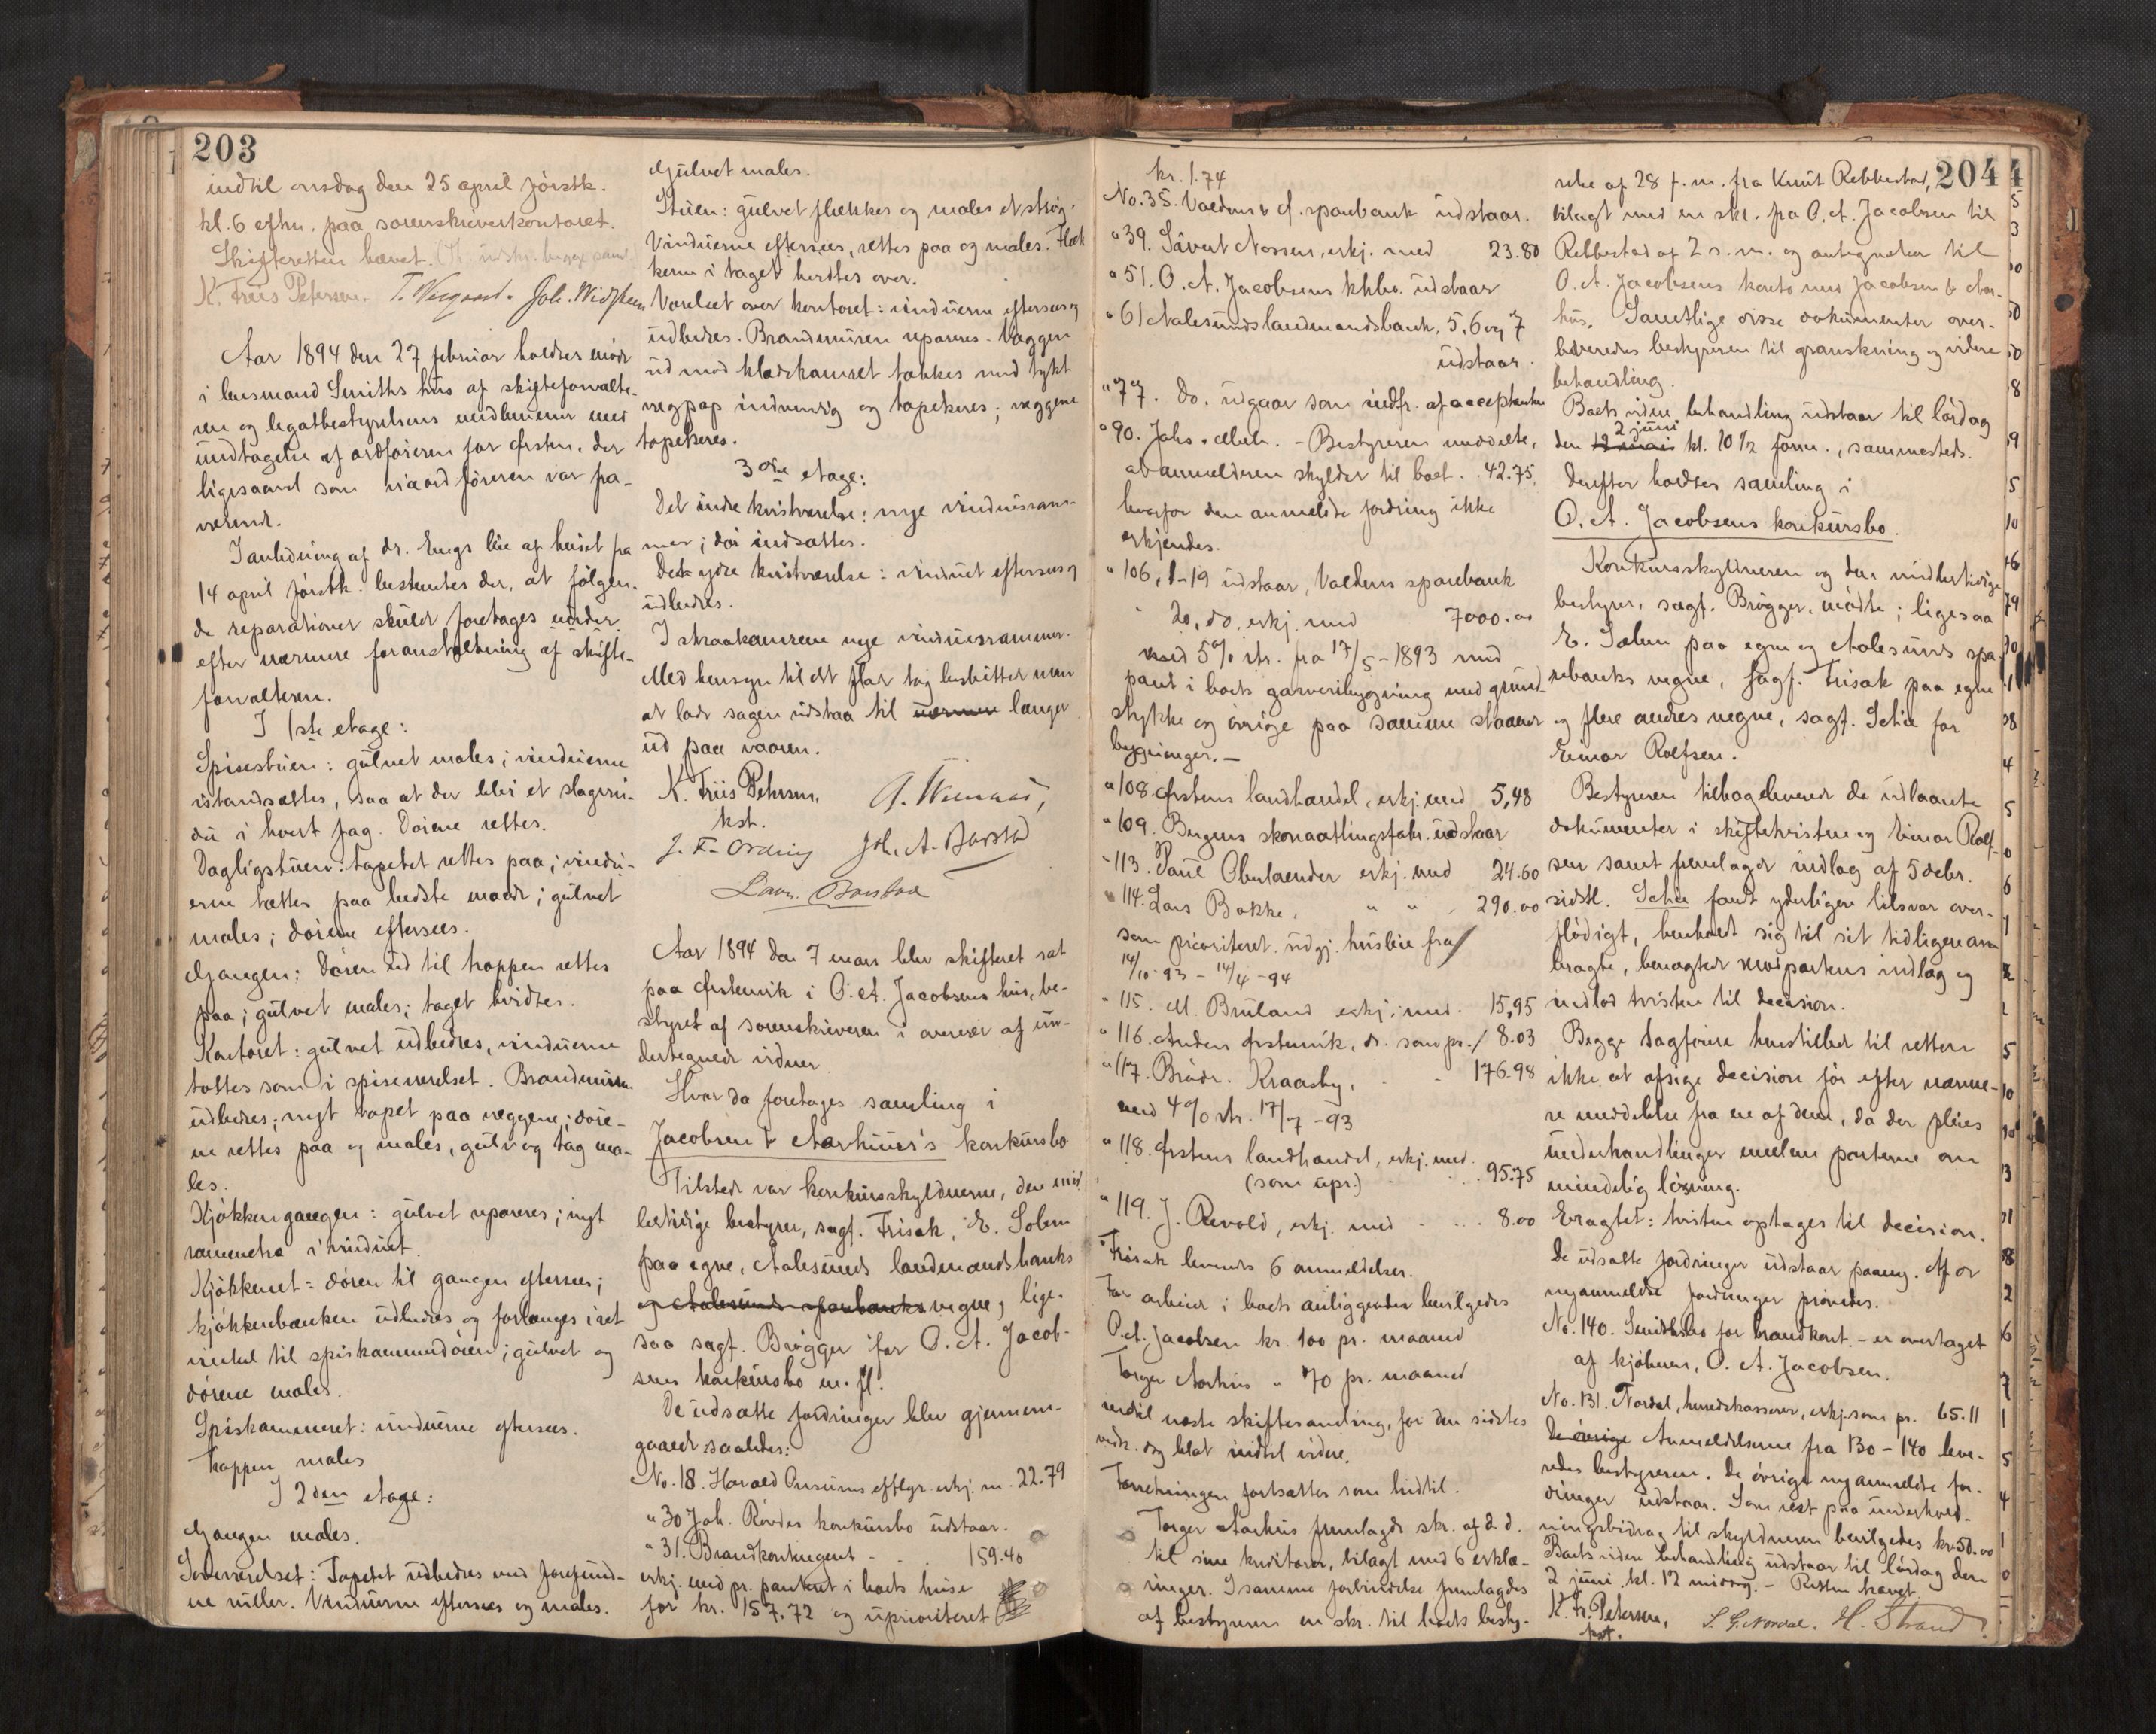 203
indtil onsdag den 25 april förstk.
kl. 6 efm. paa sorenskriverkontoret.
Skifteretten hævet.
K. Friis Petersen. Joh. Widsteen
Aar 1894 den 27 februar holdtes möde
i lensmand Smiths hus af skifteforvalte-
ren og legatbestyrelsens medlemmer med
undtagelse af ordföreren for Örsten, der
ligesaavel som viceordföreren var fra-
værende.
I anledning af dr. Engs leie af huset fra
14 april förstk. bestemtes der, at fölgen-
de reparationer skulde foretages under
efter nærmere foranstaltning af skifte-
forvalteren.
I 1ste etage:
Spisestuen: gulvet males; vinduerne
istandsættes, saa at der blir et slagvin-
du i hvert fag. Dörene rettes.
Dagligstuen: Tapetet rettes paa; vindu-
erne tættes paa bedste maade; gulvet
males; dörene eftersees.
Gangen: Dören ud til trappen rettes
paa; gulvet males; taget hvidtes.
Kontoret: gulvet udbedres, vinduerne
tættes som i spiseværelset. Brandmuren
udbedres; nyt tapet paa væggene; döre-
ne rettes paa og males, gulv og tag ma-
les.
Kjökkengangen: gulvet repareres; nyt
rammetræ i vinduet.
Kjökkenet: dören til gangen eftersees;
kjökkenbænken udbedres og forlænges i ret
vinkel til spiskammerdören; gulvet og
dörene males.
Spiskammeret: vinduerne eftersees.
Trappen males
I 2den etage:
Gangen males.
Soveværelset: Tapetet udbedres med forefund-
ne ruller. Vinduerne eftersees og males.
Gulvet males.
Stuen: gulvet flækkes og males et strög.
Vinduerne eftersees, rettes paa og males. Flæk
kerne i taget hvidtes over.
Værelset over kontoret: vinduerne eftersees og
udbedres. Brandmuren repareres. Væggen
ud mod klædekamret tækkes med tykt
vægpap indvendig og tapetseres; væggene
tapetseres.
3die etage:
Det indre kvistværelse: nye vinduesram-
mer; dör indsættes.
Det ydre kvistværelse: vinduet eftersees og
udbedres.
I skraakamrene nye vinduesrammer.
Med hensyn til det flade tag besluttet man
at lade sagen udstaa til nærmere længer
ud paa vaaren.
K. Friis Petersen,
kst.
J. F. Ording Joh. A. Barstad
Laur. Barstad
Aar 1894 den 7 mars blev skifteret sat
paa Örstenvik i O. A. Jacobsens hus, be-
styret af sorenskriveren i overvær af un-
dertegnede vidner.
Hvor da foretages samling i
Jacobsen & Aarhuus's konkursbo
Tilstede var konkursskyldnerne, den mid
lertidige bestyrer, sagf. Frisak, E. Solem
paa egne, Aalesunds landmandsbanks
og Aalesunds sparebanks vegne, lige-
saa sagf. Brögger for O. A. Jacob-
sens konkursbo m. fl.
De udsatte fordringer blev gjennem-
gaaede saaledes:
No. 18. Harald Onsums eftflgr. erkj. m. 22.79
" 30 Joh. Rövdes konkursbo udstaar.
" 31. Brandkontingent - . . 159.46
erkj. med pr. panteret i boets huse
for kr. 157.72 og uprioriteret
kr. 1.74
No. 35. Voldens & Ö. sparebank udstaar.
" 39. Sivert Nossen, erkj. med 23.80
" 51. O. A. Jacobsens kkbo. udstaar
" 61 Aalesunds landmandsbank, 5, 6 og 7
udstaar.
" 77. Do. udgaar som indfr. af acceptanten
" 90. Johs. Abeh. - Bestyreren meddelte,
at anmelderen skylder til boet . . 42.75,
hvorfor den anmeldte fordring ikke
erkjendes.
" 106, 1-19 udstaar, Voldens sparebank
" 20, do. erkj. med 7000.00
med 5% rtr. fra 17/5 - 1893 med
pant i boets garveribygning med grund-
stykke og övrige paa samme staaende
bygninger. -
" 108. Örstens landhandel, erkj. med 5,48
" 109. Bergens skomatlingsfabr. udstaar
" 113. Paul Oberlaender erkj. med 24.60
" 114. Lars Bakke, " " . 290.00
som prioriteret. udgj. husleie fra
14/10-93 - 14/4-94
" 115. M. Bruland erkj. med. 15,95
" 116. Anders Örstenvik, do. som pr. 18.03
" 117. Brödr. Kraasby, . - 176.98
med 4% rtr. 17/7 -93
" 118. Örstens landhandel, erkj. med.
(som upr.) - . . 95.75
" 119. J. Revold, erkj. med - . . 8.00
Frisak leverede 6 anmeldelser.
For arbeide i boets anliggender bevilgedes
O. A. Jacobsen kr. 100 pr. maaned
Torger Aarhus " 70 pr. maaned
indtil næste skiftesamling, for den sidstes
vedk. dog blot indtil videre.
Forretningen fortsættes som hidtil.
Torger Aarhus fremlagde skr. af d. d.
til sine kreditorer, bilagt med 6 erklæ-
ringer. I samme forbindelse fremlagdes
af bestyreren en skr. til boets besty-
204
relse af 28 f. m. fra Knut Rebbestad,
bilagt med en skr. fra O. A. Jacobsen til
Rebbestad af 2 s. m. og antegnelser til
O. A. Jacobsens konto med Jacobsen & Aar-
hus. Samtlige disse dokumenter over-
leveredes bestyreren til granskning og videre
behandling.
Boets videre behandling udstaar til lördag
2 juni
den 12 mai kl. 10 1/2 form., sammesteds.
Derefter holdtes samling i
O. A. Jacobsens konkursbo.
Konkursskyldneren og den midlertidige
bestyrer, sagf. Brögger, mödte; ligesaa
E. Solem paa egne og Aalesunds spa-
rebanks vegne, sagf. Frisak paa egne
og flere andres vegne, sagf. Schie for
Einar Rolfsen.
Bestyreren tilbageleverede de udlaante
dokumenter i skiftetvisten og Einar Rolf-
sen samt fremlagde indlæg af 5 debr.
sidstl. Schie fandt yderligere tilsvar over-
flödigt, henholdt sig til sit tidligere an
bragte, benægtede modpartens indlæg og
indlod tvisten til decision.
Begge sagförere henstillede til retten
ikke at afsige decision för efter nærme-
re meddelelse fra en af dem, da der pleies
underhandlinger mellem parterne om
mindelig lösning.
Eragtet: tvisten optages til decision.
De udsatte fordringer udstaar paany. Af de
nyanmeldte fordringer prövedes.
No. 140. Smithsbo for brandkont. - er overtaget
af kjöberen, O. A. Jacobsen.
No. 131. Nordal, herredskasserer, erkj. som pr. 65.11
De övrige Anmeldelserne fra 130 - 140 leve-
redes bestyreren. De övrige nyanmeldte for-
dringer udstaar. Som rest paa underhold-
ningsbidrag til skyldneren bevilgedes kr. 50.00
Boets videre behandling udstaar til lördag den
2 juni kl. 12 middag. - Retten hævet
K. Fr. Petersen,
kst.
S. G. Nordal. H. Strand